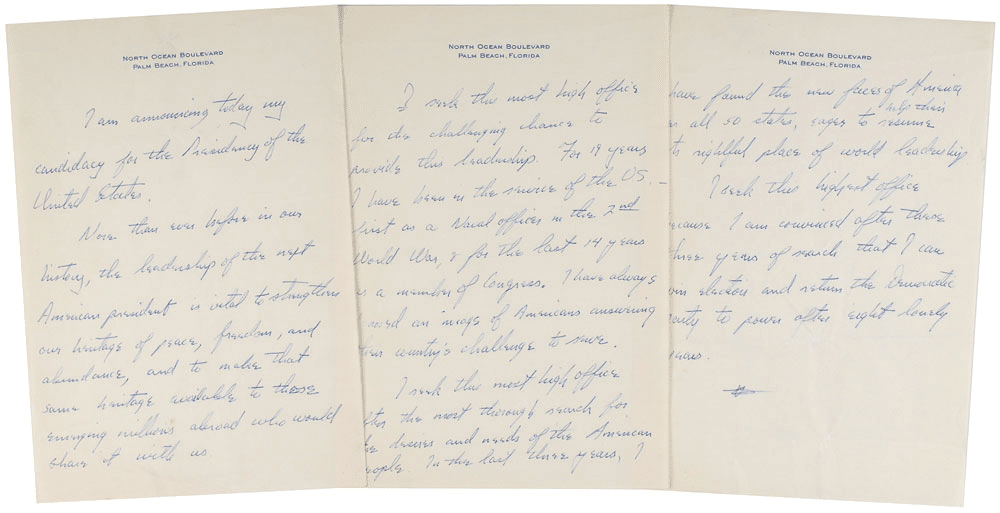 NORTH OCEAN BOULEVARD
PALM BEACH, FLORIDA
I am announcing today my
candidacy for the Presidency of the
United States.
More than ever before in our
history, the leadership of the next
American president is vital to strengthen
our heritage of peace, freedom, and
abundance, and to make that
same heritage available to those
emerging millions abroad who would
share it with us.
NORTH OCEAN BOULEVARD
PALM BEACH, FLORIDA
I seek this most high office
for the challenging chance to
provide this leadership. For 19 years
I have been in the service of the US. –
first as a Naval officer in the 2nd
World War, & for the last 14 years
as a member of Congress. I have always
an image of Americans answering
their country's challenge to serve.
I seek this most high office
after the most thorough search for
the desires and needs of the American
people. In the last three years, I
NORTH OCEAN BOULEVARD
PALM BEACH, FLORIDA
have found the new faces of America
help their
in all 50 states, eager to resume
its rightful place of world leadership
I seek this highest office
because I am convinced after these
three years of search that I can
win election and return the Democratic
party to power after eight lonely
years.